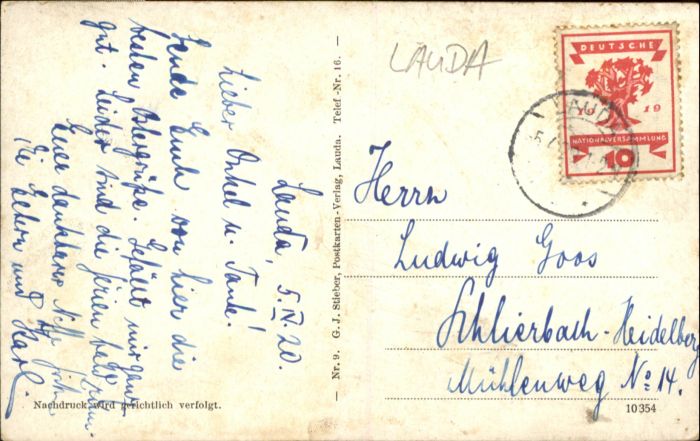 Lauda, 5.IV.20.
Lieber Onkel u. Tante!
Sende Euch von hier die
besten Ostergrüße. Gefällt mir ganz
gut. Leider sind die Ferien bald zum
Euer dankbarer Neffe
die Eltern und Karl.
Nachdruck wird gerichtlich verfolgt.
— Nr. 9. G. J. Stieber, Postkarten-Verlag, Lauda. Telef-Nr. 16. —
LAUDA
DEUTSCHE
19
NATIONALVERSAMMLUNG
10
LAUDA
Herrn
Ludwig Goos
Schlierbach-Heidelberg
Mühlenweg No 14.
10354